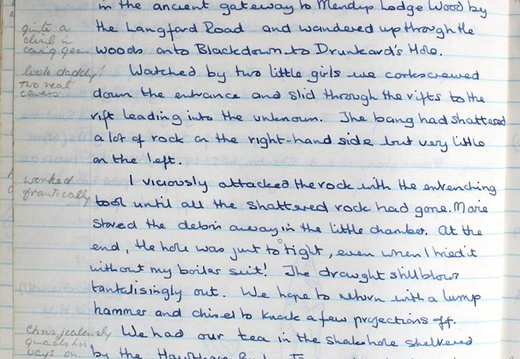 in the ancient gateway to Mendip Lodge Wood by
the Langford Road and wandered up through the
woods onto Blackdown to Drunkard's Hole.
quite a
climb in
caving gear
Watched by two little girls we corkscrewed
down the entrance and slid through the rifts to the
rift leading into the unknown. The bang had shattered
a lot of rock on the right-hand side but very little
on the left.
look daddy!
two real
cavers
I viciously attacked the rock with the entrenching
tool until all the shattered rock had gone. Marie
stowed the debris away in the little chamber. At the
end, the hole was just to tight, even when I tried it
without my boiler suit! The draught still blows
tantalisingly out. We hope to return with a lump
hammer and chisel to knock a few projections off.
worked
frantically
We had our tea in the shakehole sheltered
by the
Chris jealously
guards his
ways on